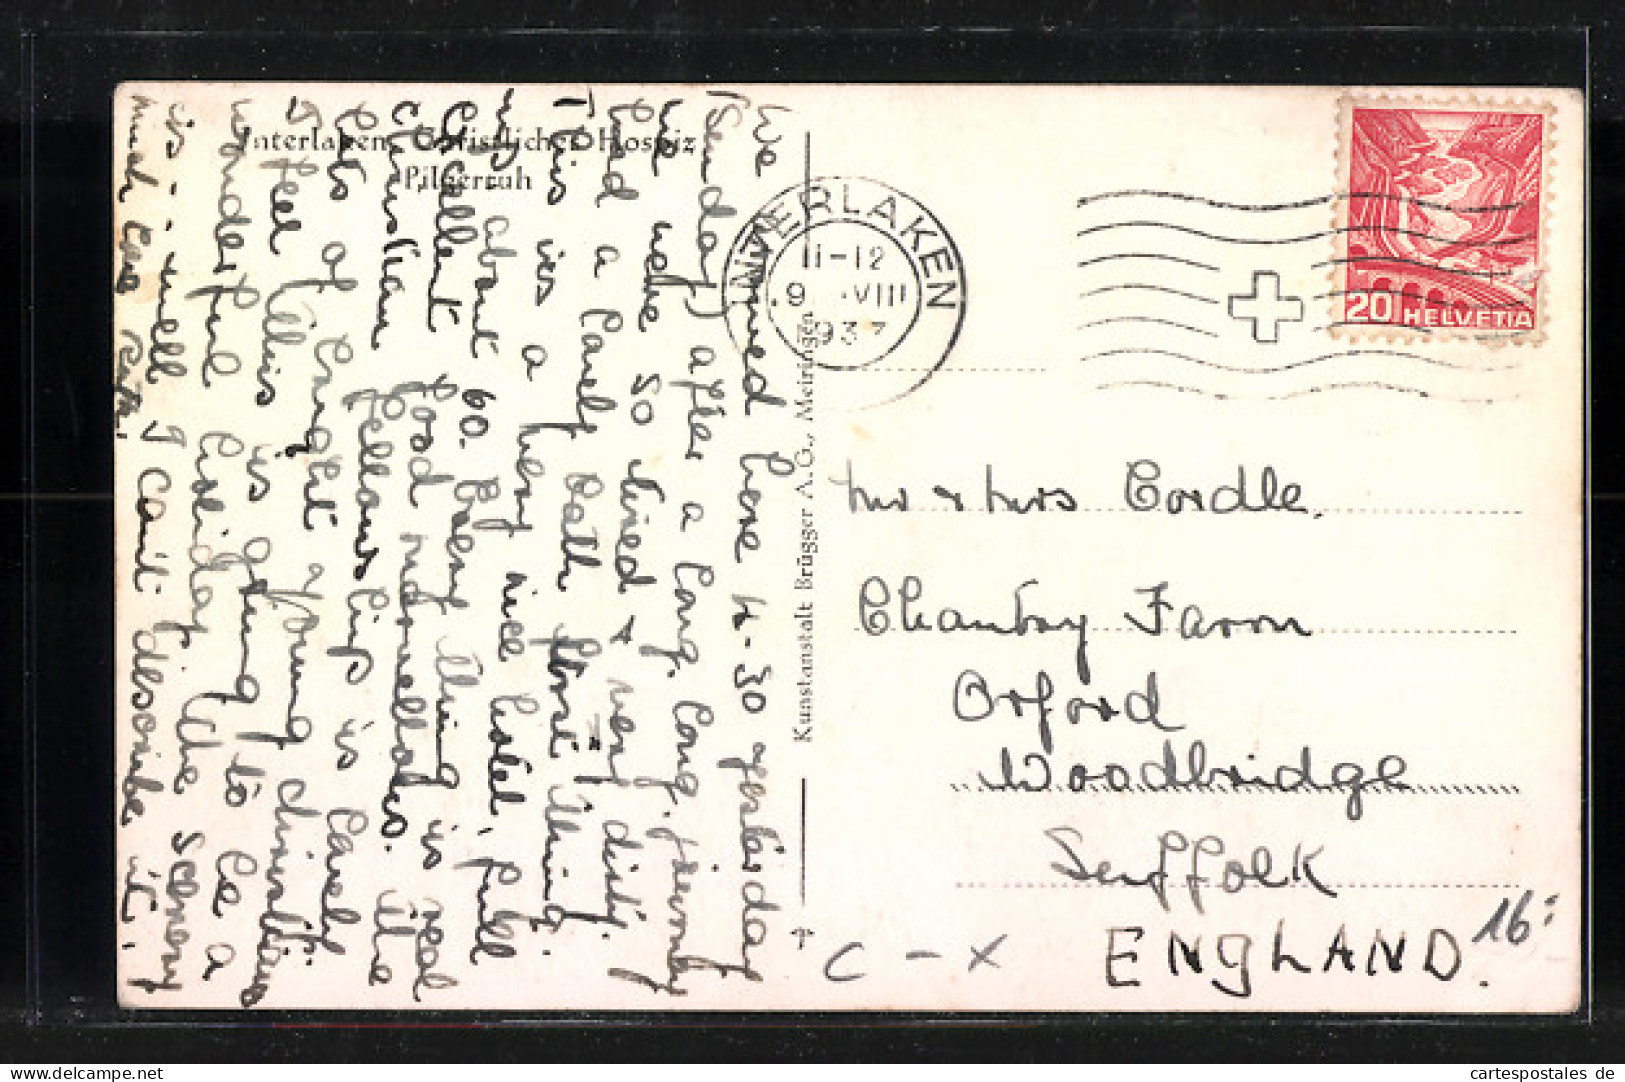 Interlaken, Christliches Hospiz
Pilgerruh
We arrived here 4-30 yesterday
(Sunday) after a long, long, journey
we were so tired & very dirty.
had a lovely bath first thing.
This is a very nice hotel, full
up about 60. Every thing is real
Excellent food marvellous. the
Christian fellowship is lovely
lots of
I feel this is going to be a
wonderful holiday the scenery
is - - well I cant describe it.
much love Ruth.
Kunstanstalt Brügger A.G., Meiringen
INTERLAKEN
11-12
9. VIII
1937
20 HELVETIA
Mr & Mrs Cordle.
Chantry Farm
Orford
Woodbridge
Suffolk
ENGLAND.
C - X
16:
cartespostales de